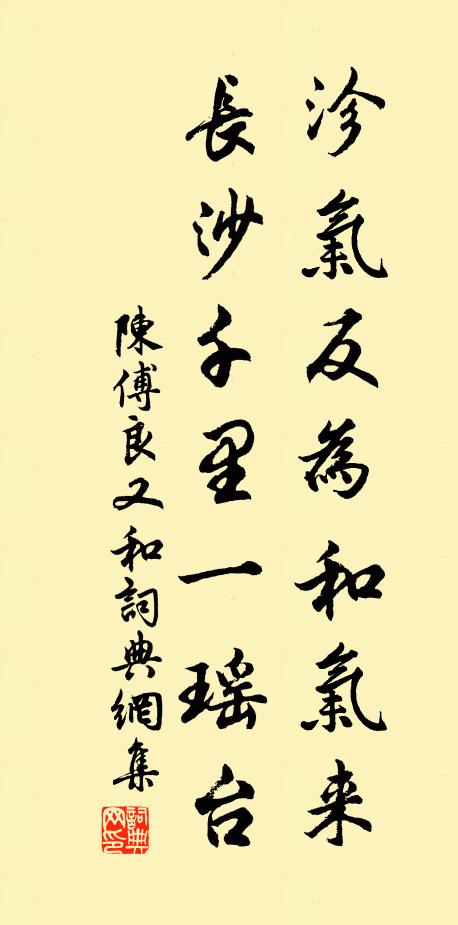 沴氣反為和氣来
長沙千里一瑶台
陳傅良又和詞典網集
詞典网印